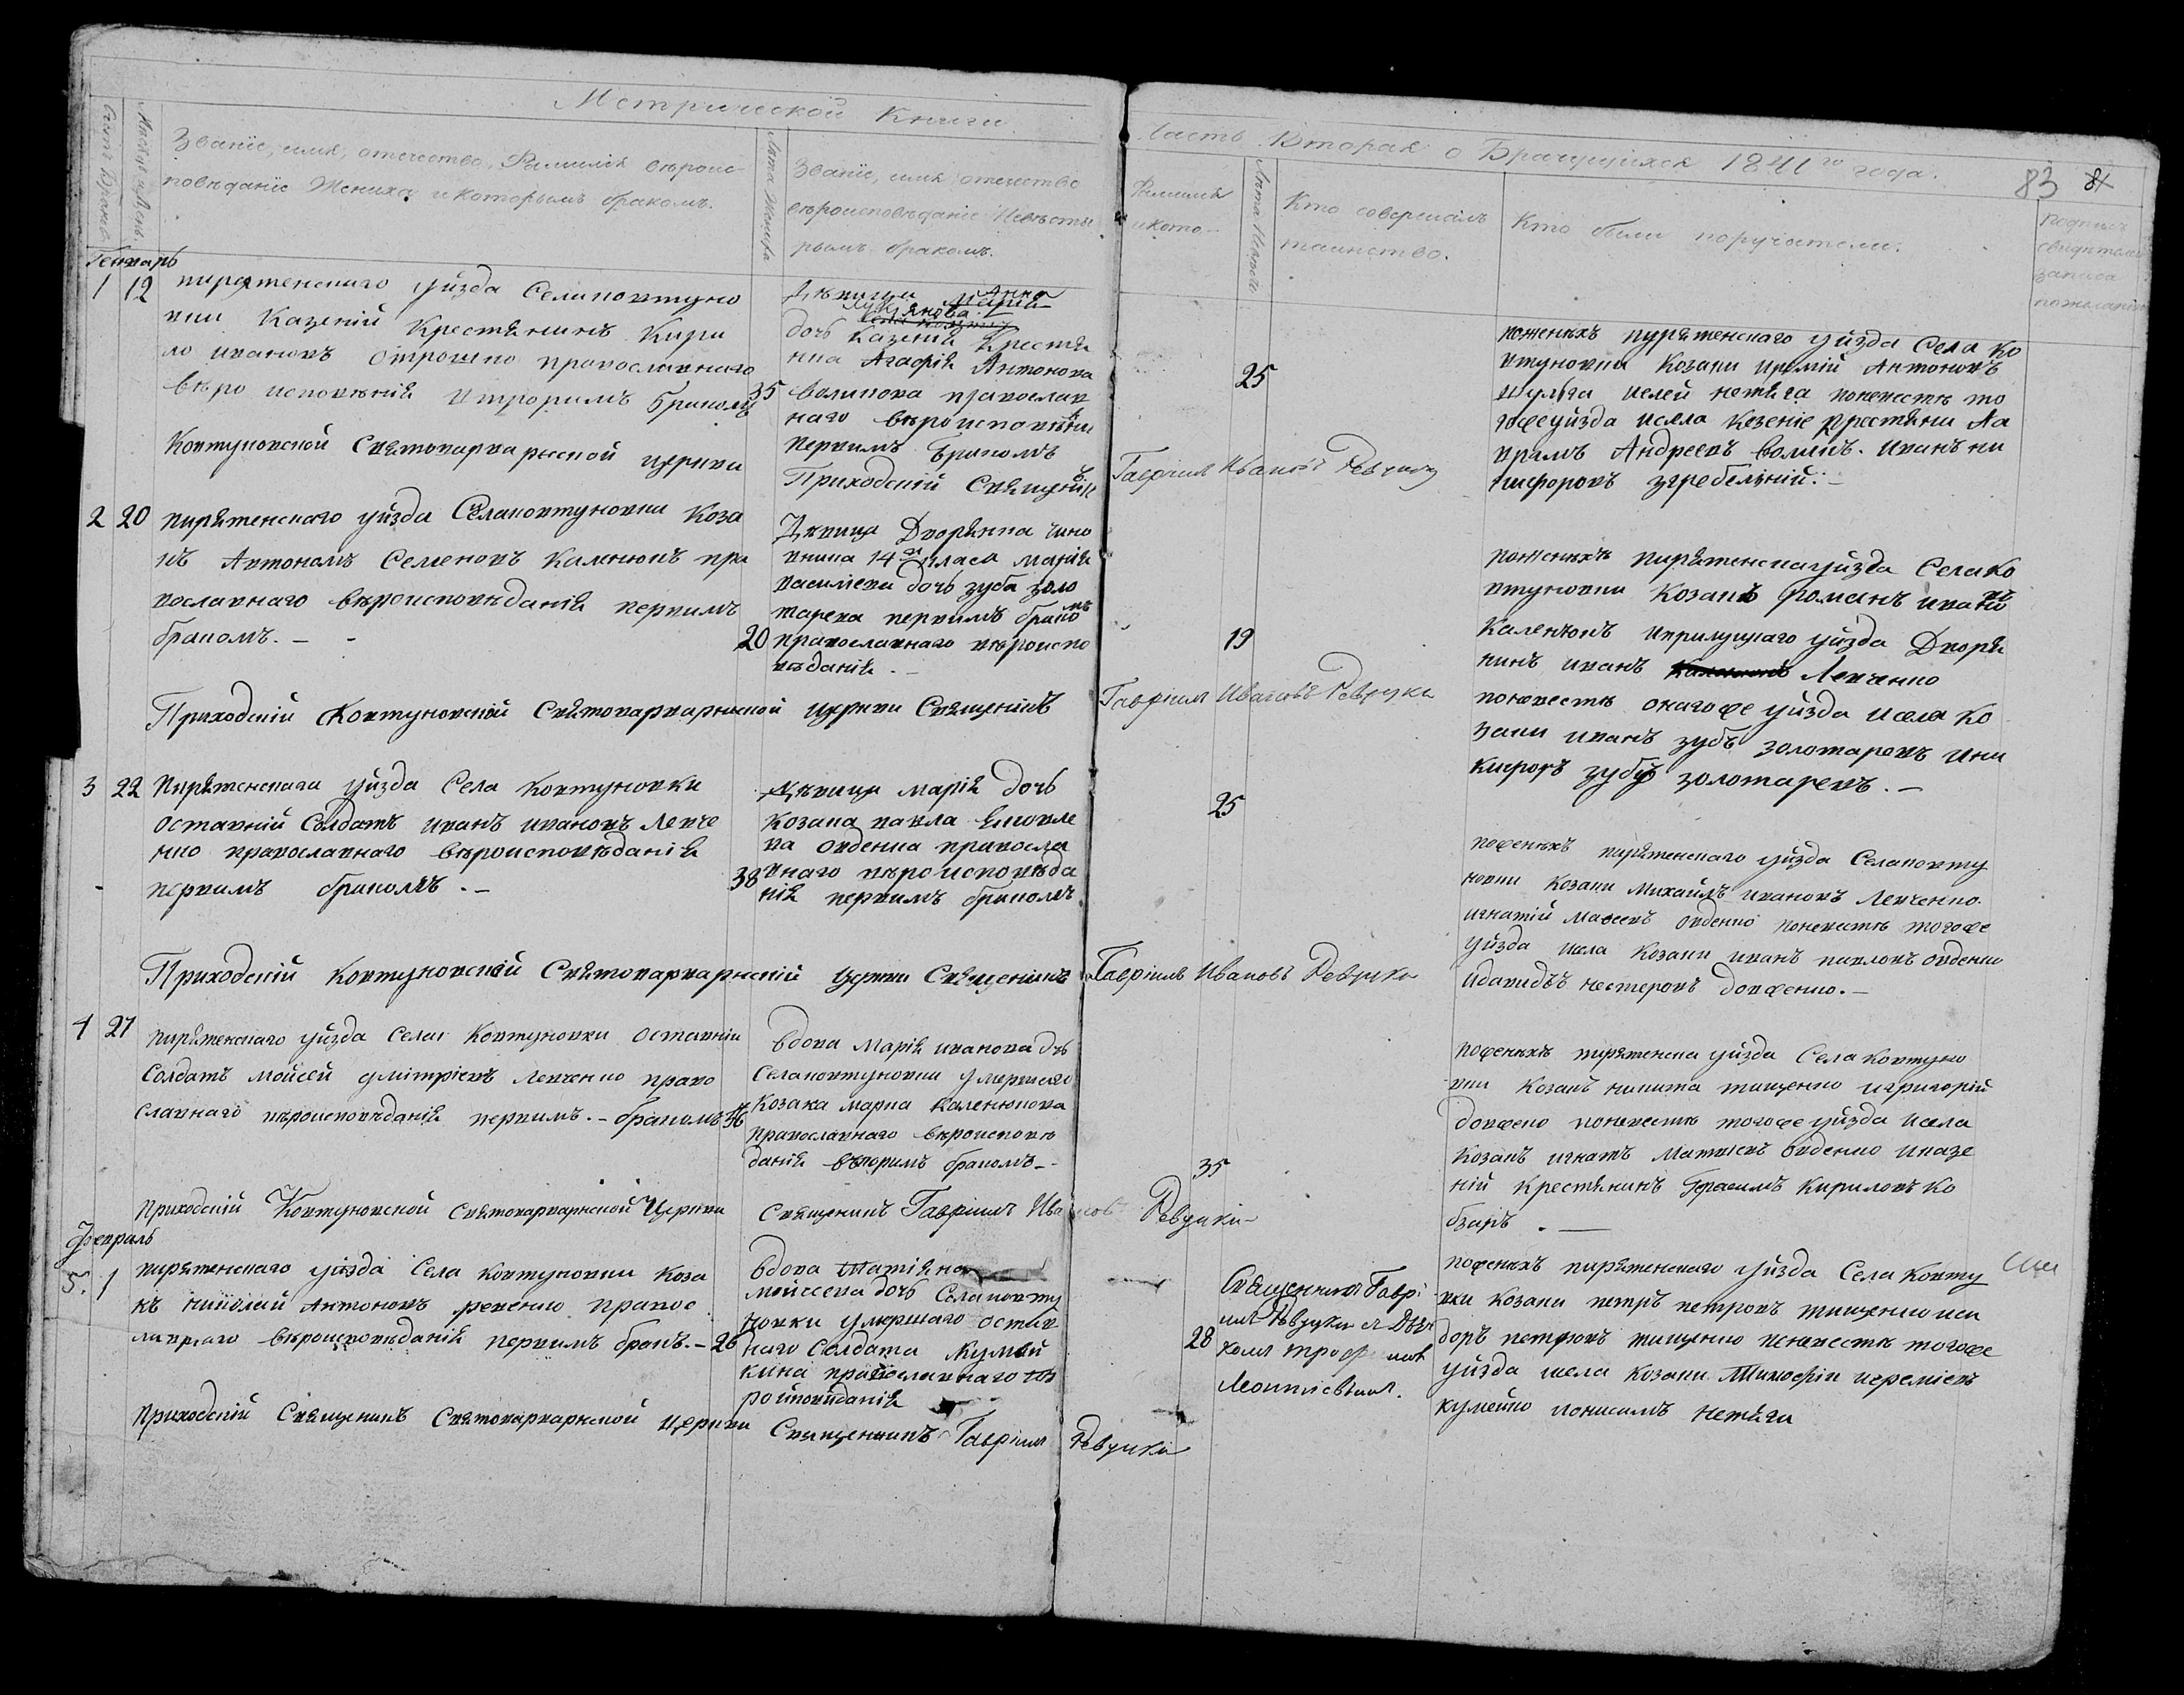 Метрической Книги
Часть Вторая о Брачущихся 1841го года.
83 84
Счетъ Браковъ.
Мѣсяцъ и День.
Званіе, имя, отечество, Фамилія вѣроис-
повѣданіе Жениха и которымъ бракомъ.
Лѣта Жениха
Званіе, имя, отечество
вѣроисповѣданіе Невѣсты
рымъ бракомъ.
Фамилія
и кото-
Лѣта Невѣсты
Кто совершалъ
таинство.
Кто были поручатели.
подпись
свидѣтелей
записа
пожеланію
Генварь
1 12 пирятенскаго уйзда Селаковтуно
вки Казеній Крестянинъ Кири
ло ивановъ Отрошко православнаго
вѣро исповѣнія втроримъ Бракомъ
35
Ковтуновской Святоварварыской церкви
Дѣвица Анна
Марія
Лукянова
дочь Казеній Крестя
нка Агафія Антонова
воликова православ
наго вѣроисповѣній
первимъ Бракомъ
Приходскій Священикъ
Гавріилъ Ивановъ Ревуцки
25
поженихѣ пурятенскаго уйзда Села Ко
втуновки Козаки иремій Антоновъ
Шульга иелей нетяга поневестѣ то
гожеуйзда исела Казеніе Крестяни Ла
врамъ Андреевъ воликъ. Иванъ ни
кифоровъ згребельній.
2 20 пирятенскаго уйзда Селаковтуновки Коза
къ Автономъ Семеновъ Каленюкъ пра
вославнаго вѣроисповѣданія первимъ
бракомъ. - -
20
Дѣвица Дворянка чино
вника 14го класа марія
василіева дочь зуба золо
тарева первимъ бракомъ
православнаго вѣроиспо
вѣданія. -
19
Приходскій Ковтуновской Святоварварнской церкви Священікъ
Гавріилъ Ивановъ Ревуцки
поженихѣ пирятенскагуйзда Селако
втуновки Козакъ романъ ивановъ
Каленюкъ иприлуцкаго уйзда Дворя
нинъ иванъ Левченко
поневестѣ онагоже уйзда исела ко
заки иванъ зубъ золотаревъ ини
кифоръ зубъ золотаревъ. -
3 22 Пирятенскаги уйзда Села Ковтуновки
оставній Солдатъ иванъ ивановъ Левче
нко православнаго вѣроисповѣданія
первимъ бракомъ. -
38
Дѣвица марія дочь
козака павла Яковле
ва овденка правосла
внаго вѣроисповѣда
нія первимъ бракомъ
25
Приходскій Ковтуновскій Святоварварнскій церкви Священикъ
Гавріилъ Ивановъ Ревуцки
поженихѣ пирятенскаго уйзда Селаковту
новки Козаки михаилъ ивановъ Левченко.
игнатій матвеевъ овденко поневестѣ тогоже
уйзда исела Козаки иванъ павловъ овденко
идавидъ нестеровъ довженко. -
4 27
пирятенскаго уйзда Села Ковтуновки Оставній
Солдатъ мойсей дмітріевъ Левченко право
славнаго вѣроисповѣданія первимъ. - бракомъ 36
Вдова марія иванова дчь
Селаковтуновки умершаго
Козака марка Каленюкова
православнаго вѣроисповѣ
данія вторимъ бракомъ -
35
приходскій Ковтуновской святоварварнской Церкви
Священикъ Гавріилъ Ивановъ Ревуцкій
поженихѣ пирятенска уйзда Села Ковтуно
вки Козакъ никита тищенко игригорій
довжено поневестѣ тогоже уйзда исела
козакъ игнатъ матвіевъ овденко иказе
ній Крестянинъ Герасимъ Кириловъ Ко
бзарь. -
Февраль
5. 1 пирятенскаго уйзда Села Ковтуновки Коза
къ николай Антоновъ ревенко правос
лавнаго вѣроисповѣданія первимъ бракъ. - 26
Вдова татіяна
мойсеева дочь Селаковту
новки умершаго остав
наго Солдата Кумей
кина православнаго вѣ
роиповиданія
28
Священикъ Гаврі
илъ Ревуцки и Дья
Леонтіевичъ.
приходскій Священикъ Святоварварнской церкви
Священникъ Гавріилъ Ревуцкій
поженихѣ пирятенскаго уйзда Села Ковту
вки Козаки петръ петровъ тищенко иси
доръ петровъ тищенко поневестѣ тогоже
уйзда исела Козаки Тимофіи иереміевъ
кумейко